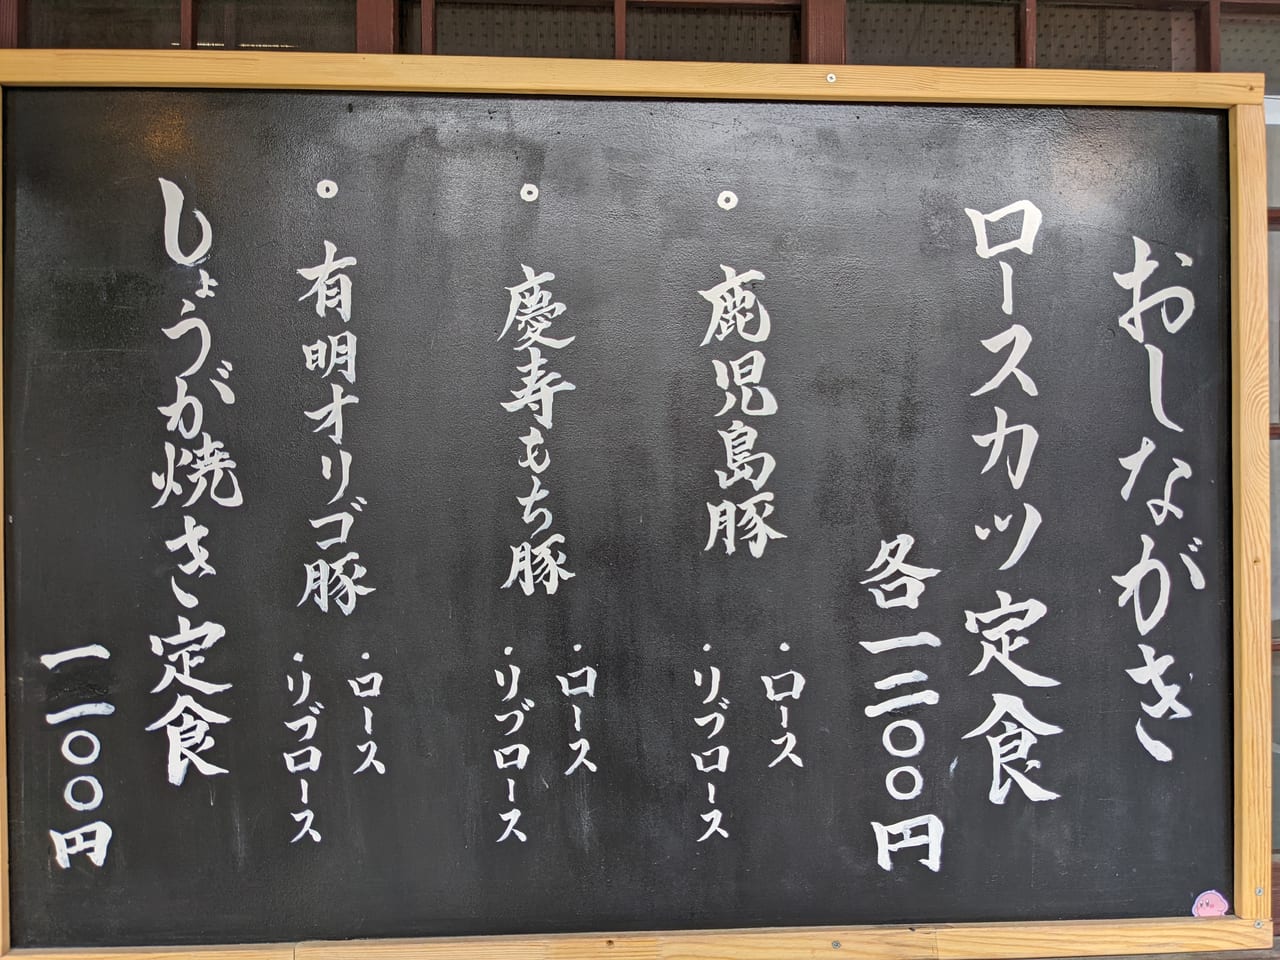 おしながき
ロースカツ定食
各一三〇〇円
。鹿児島豚
・ロース
・リブロース
。慶寿もち豚
・ロース
・リブロース
。有明オリゴ豚
・ロース
・リブロース
しょうが焼き定食
一二〇〇円